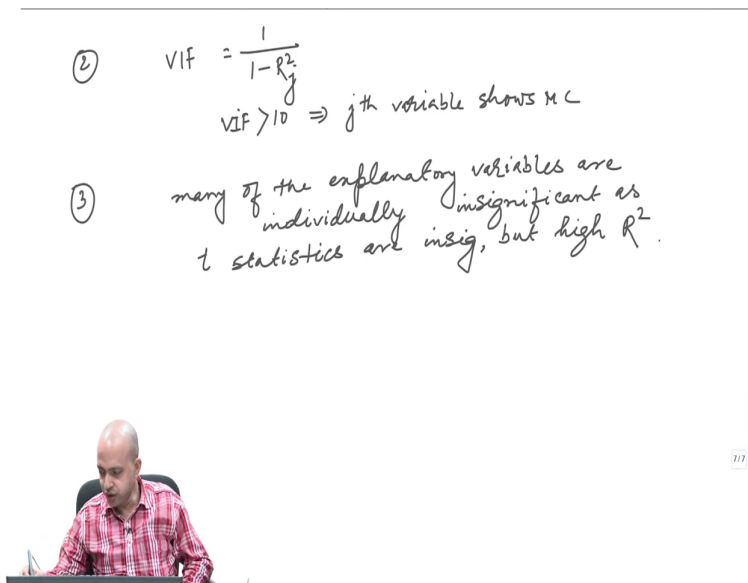 ② VIF = 1 / 1 - R²j
VIF > 10 ⇒ jth variable shows MC
③ many of the explanatory variables are
individually insignificant as
t statistics are insig, but high R².
7/7